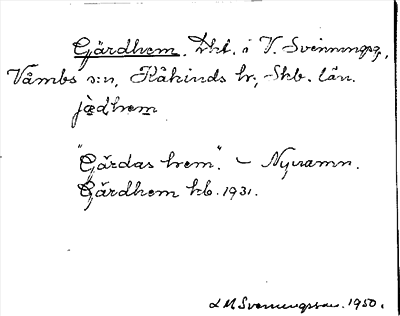 Gärdhem. Lht. i V. Svenningsg.,
Våmbs s:n, Kåkinds hr, Skb. län.
jä̀dhem
"Gärdas hem." – Nynamn.
Gärdhem kb. 1931.
L M Svenungsson. 1950.